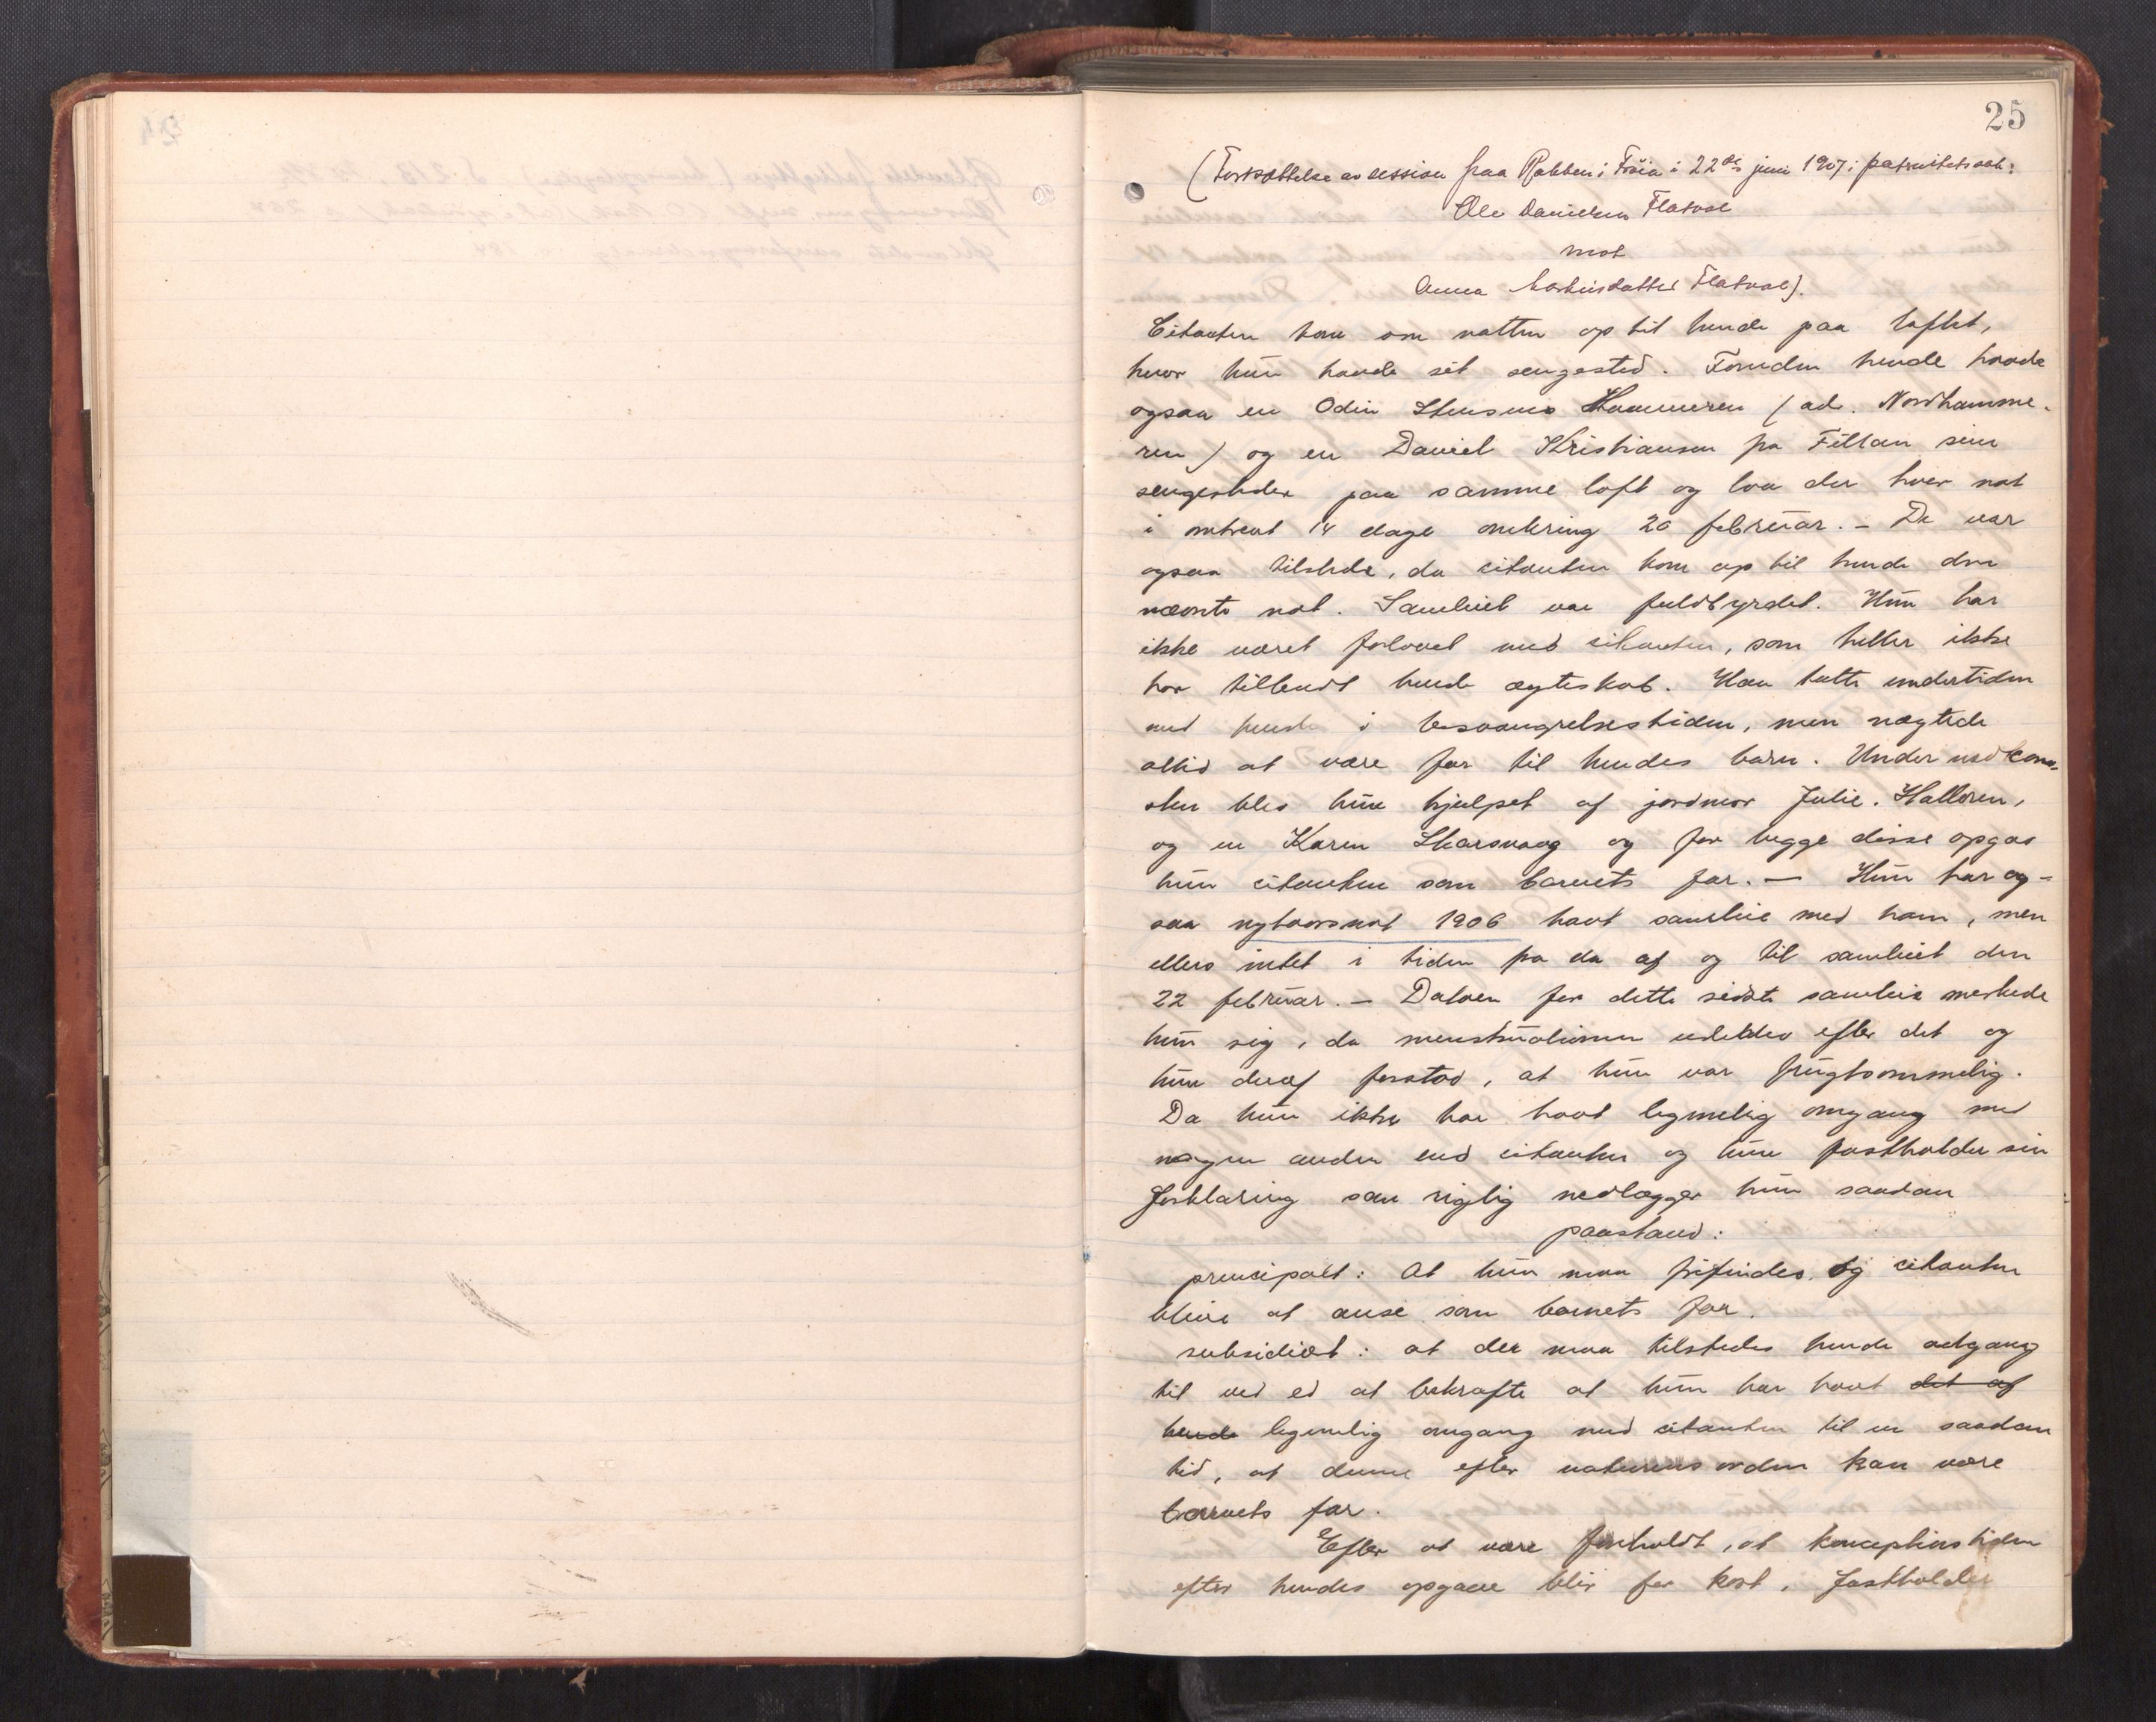 25
(Fortsættelse av session paa Rabben i Fröia i 22de juni 1907 i paternitetssak:
Ole Danielsen Flatval
mot
Anna Martinsdatter Flatval).
Citanten kom om natten op til hende paa loftet,
hvor hun havde sit sengested. Foruden hende havde
ogsaa en Odin Hammeren (ad. Nordhamme-
ren) og en Daniel Kristiansen fra Fillan sine
sengesteder paa samme loft og laa der hver nat
i omtrent 14 dage omkring 20 februar. – De var
ogsaa tilstede, da citanten kom op til hende den
nævnte nat. Samleiet var fuldbyrdet. Hun har
ikke været forlovet med citanten, som heller ikke
har tilbudt hende ægteskab. Han talte undertiden
med hende i besvangrelsestiden, men nægtede
altid at være far til hendes barn. Under nedkom-
sten blev hun hjulpet af jordmor Julie Halloren,
og en Karen Skarsvaag og for begge disse opgav
hun citanten som barnets far. – Hun har og-
saa nytaarsnat 1906 havt samleie med ham, men
ellers intet i tiden fra da af og til samleiet den
22 februar. – Datoen for dette sidste samleie merkede
hun sig, da menstruationen udeblev efter det og
hun deraf forstod, at hun var frugtsommelig.
Da hun ikke har havt legemlig omgang med
nogen anden end citanten og hun fastholder sin
forklaring som rigtig nedlægger hun saadan
paastand:
principalt: At hun maa frifindes og citanten
blive at anse som barnets far.
subsidiært: at der maa tilstedes hende adgang
til ved ed at bekræfte at hun har havt det af
hende legemlig omgang med citanten til en saadan
tid, at denne efter naturens orden kan være
barnets far.
Efter at være foreholdt, at konceptionstiden
efter hendes opgave blir for kort, fastholder